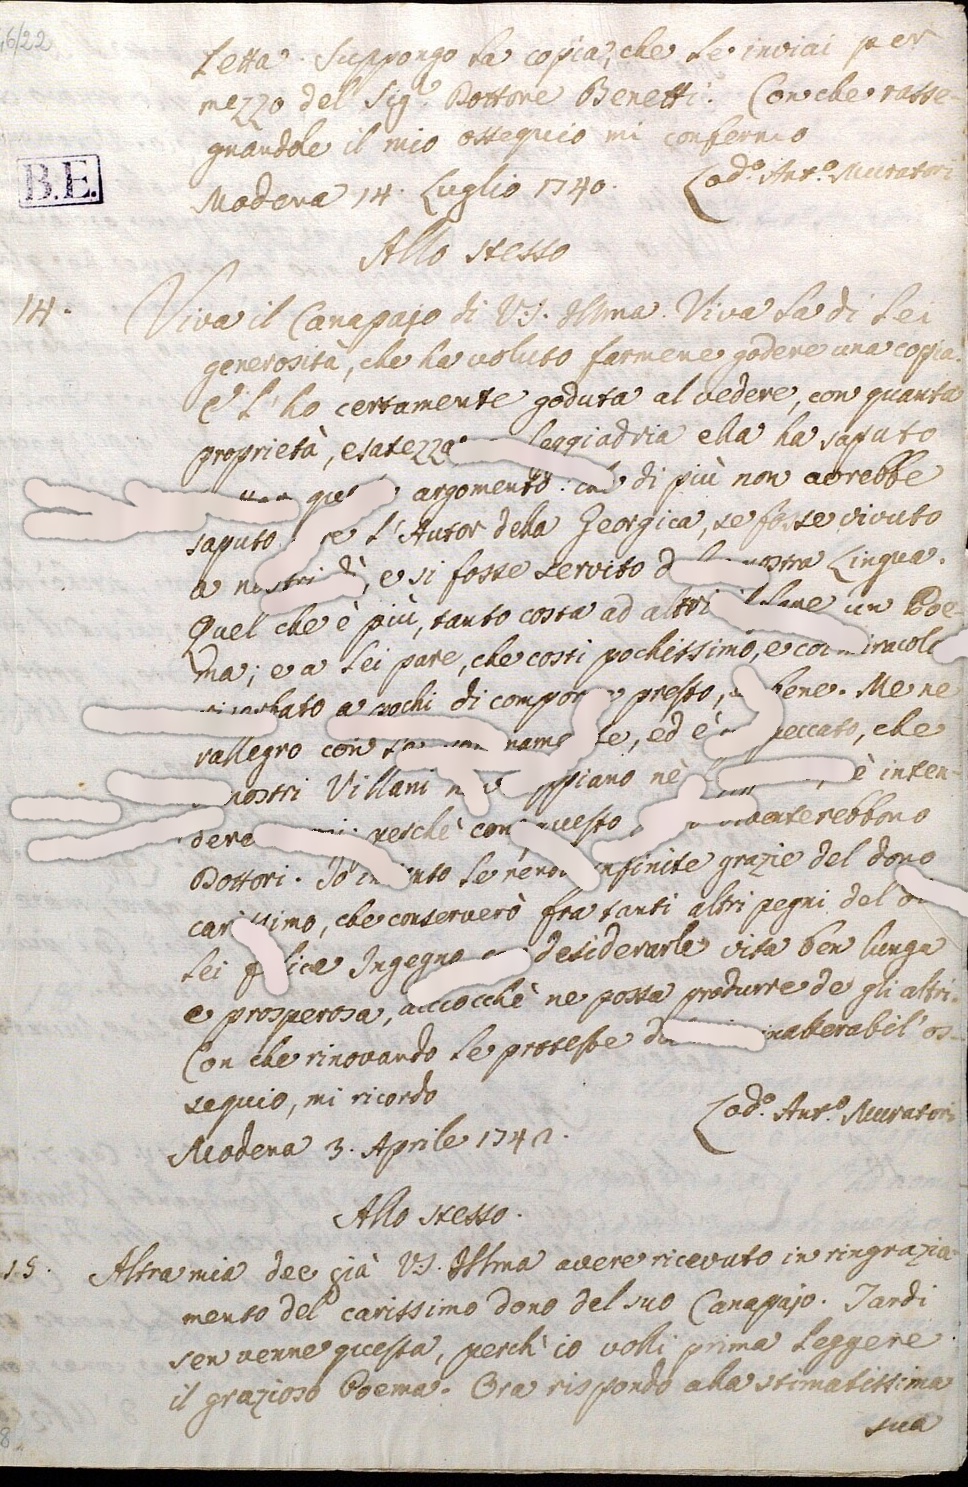 46/22
Letta. Suppongo la copia, che le inviai per
mezzo del Sig.r Dottore Benetti. Con che rasse-
gnandole il mio ossequio mi confermo
B.E.
Modena 14. Luglio 1740. Lod.o Ant.o Muratori
Allo stesso
14. Viva il Canapajo di V.S. Illma. Viva la di lei
generosità, che ha voluto farmene godere una copia.
E l'ho certamente goduta al vedere, con quanta
proprietà, esatezza leggiadria ella ha saputo
argomento: che di più non avrebbe
saputo l'Autor della Georgica, se fosse vivuto
a nostri dì, e si fosse servito nostra Lingua.
Quel che è più, tanto costa ad altri un Poe-
ma; e a lei pare, che costi pochissimo, e col
a pochi di comporre presto, bene. Me ne
rallegro con ed è peccato, che
nostri Villani nè è inten-
dere perchè con questo diventerebbono
Dottori. Io intanto le rendo infinite grazie del dono
carissimo, che conserverò fra tanti altri pegni del
lei felice Ingegno desiderarle vita ben lunga
e prosperosa, acciocchè ne possa produrre de gli altri.
Con che rinovando le proteste inalterabil' os-
sequio, mi ricordo
Lod.o Ant.o Muratori
Modena 3. Aprile
Allo stesso.
15. Altra mia dee già V.S. Illma avere ricevuto in ringrazia-
mento del carissimo dono del suo Canapajo. Tardi
sen venne questa, perch' io volli prima leggere
il grazioso Poema. Ora rispondo alla stimatissima
sua